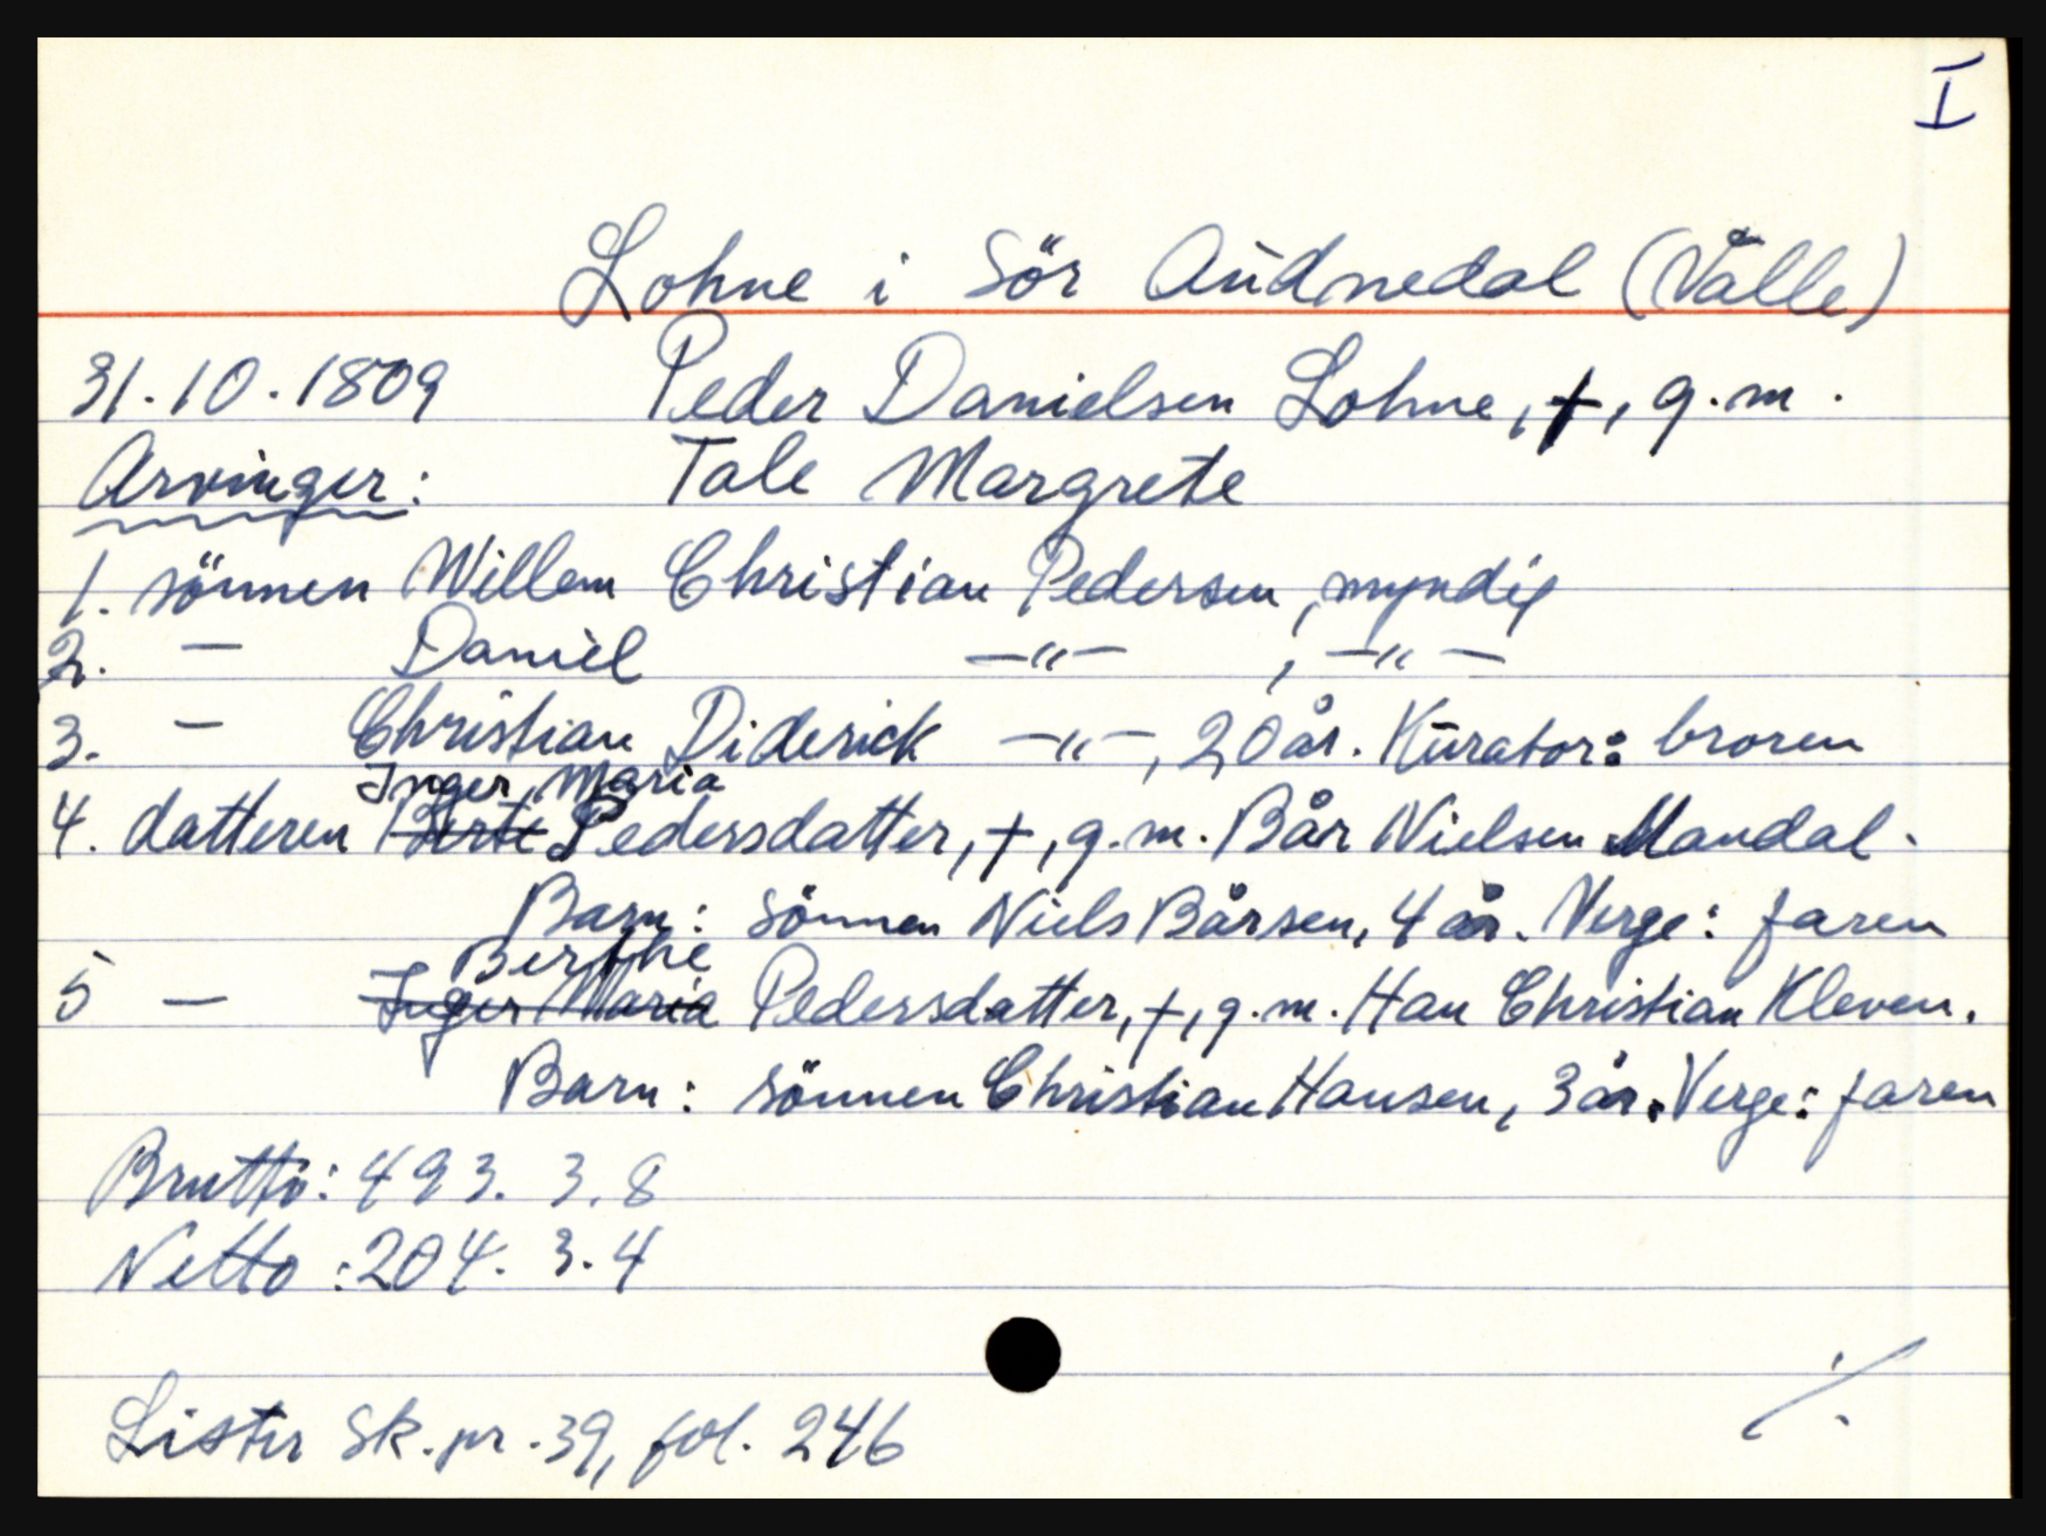 I
Lohne i Sör Audnedal (Valle)
31.10.1809 Peder Danielsen Lohne, †, g.m.
Arvinger: Tale Margrete
1. sönnen Willem Christian Pedersen, myndig
2. — Daniel —"—, —"—
3. — Christian Diderick —"—, 20 år. Kurator: broren
Inger Maria
4. datteren Berte Pedersdatter, †, g.m. Bår Nielsen Mandal.
Barn: sönnen Niels Bårsen, 4 år. Verge: faren
Berthe
5 — Inger Maria Pedersdatter, †, g.m. Han Christian Kleven.
Barn: sönnen Christian Hansen, 3 år. Verge: faren
Brutto: 493. 3. 8
Netto: 204. 3. 4
./.
Lister Sk.pr. 39, fol. 246